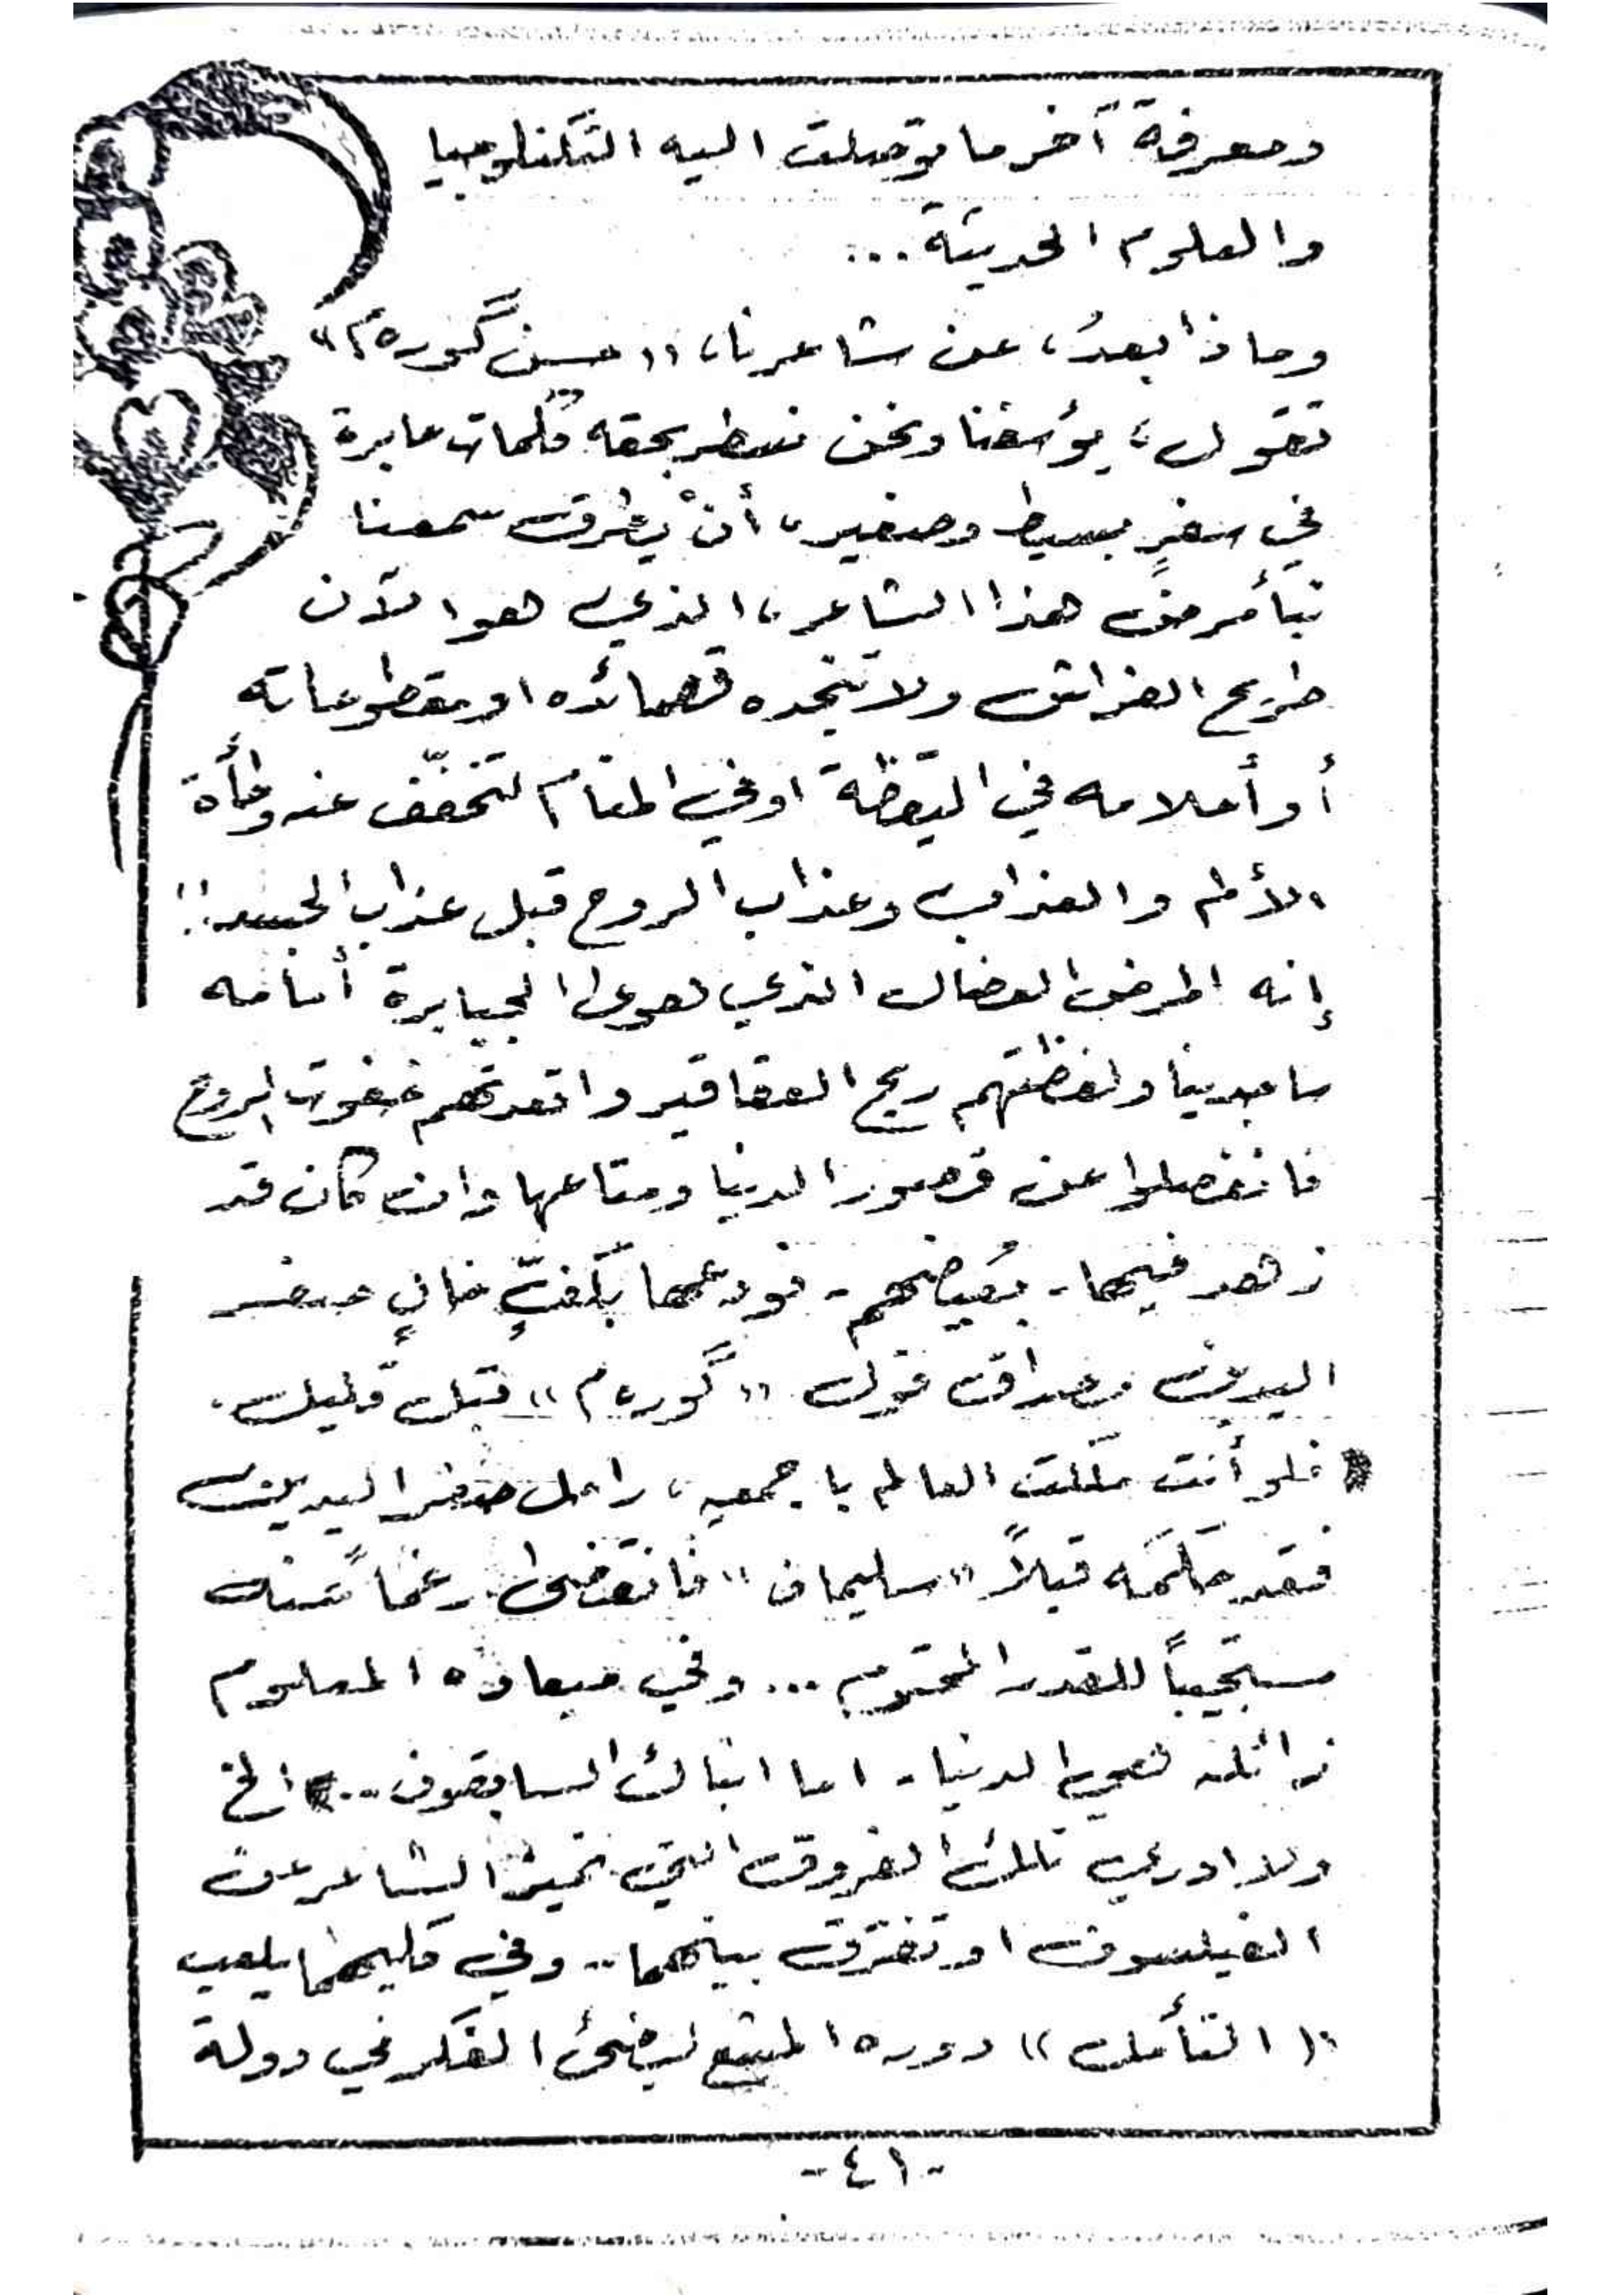 ومعرفة آخر ما توصلت اليه التكنلوجيا
والعلوم الحديثة ...
وماذا بعدُ، عن شاعرنا، «حسين گوره م»
تقول، يؤسفنا ونحن نسطر بحقه كلمات عابرة
في سفرٍ بسيط وصغير، أنْ يطرق سمعنا
نبأ مرض هذا الشاعر، الذي هو الآن
طريح الفراش ولا تنجده قصائده او مقطوعاته
أو أحلامه في اليقظة او في المنام لتخفّف عنه وطأة
الألم والعذاب وعذاب الروح قبل عذاب الجسد!!
إنه المرض العضال الذي هوى الجبابرة أمامه
ساجدينا ولفظتهم ريح العقاقير واقعدتهم خفوت الروح
فانفصلوا عن قصور الدنيا ومتاعها وان كان قد
زهد فيها - بعضهم - فودعها بكفٍّ خانٍ صفر
اليدين مصداق قول «گوره م» قبل قليل.
فلو أنت ملكت العالم باجمعه، راحل صفر اليدين
فقد حكمه قبلاً «سليمان» فانقضى رغماً منه
مستجيباً للقدر المحتوم ... وفي ميعاده المعلوم
زائلة هي الدنيا - اما انباك السابقون ... الخ
ولا ادري تلك الفروق التي تميز الشاعر عن
الفيلسوف او تفترق بينهما .. وفي كليهما يلعب
«التأمل» دوره المتبع ليضئ الفكر في دولة
-٤١-